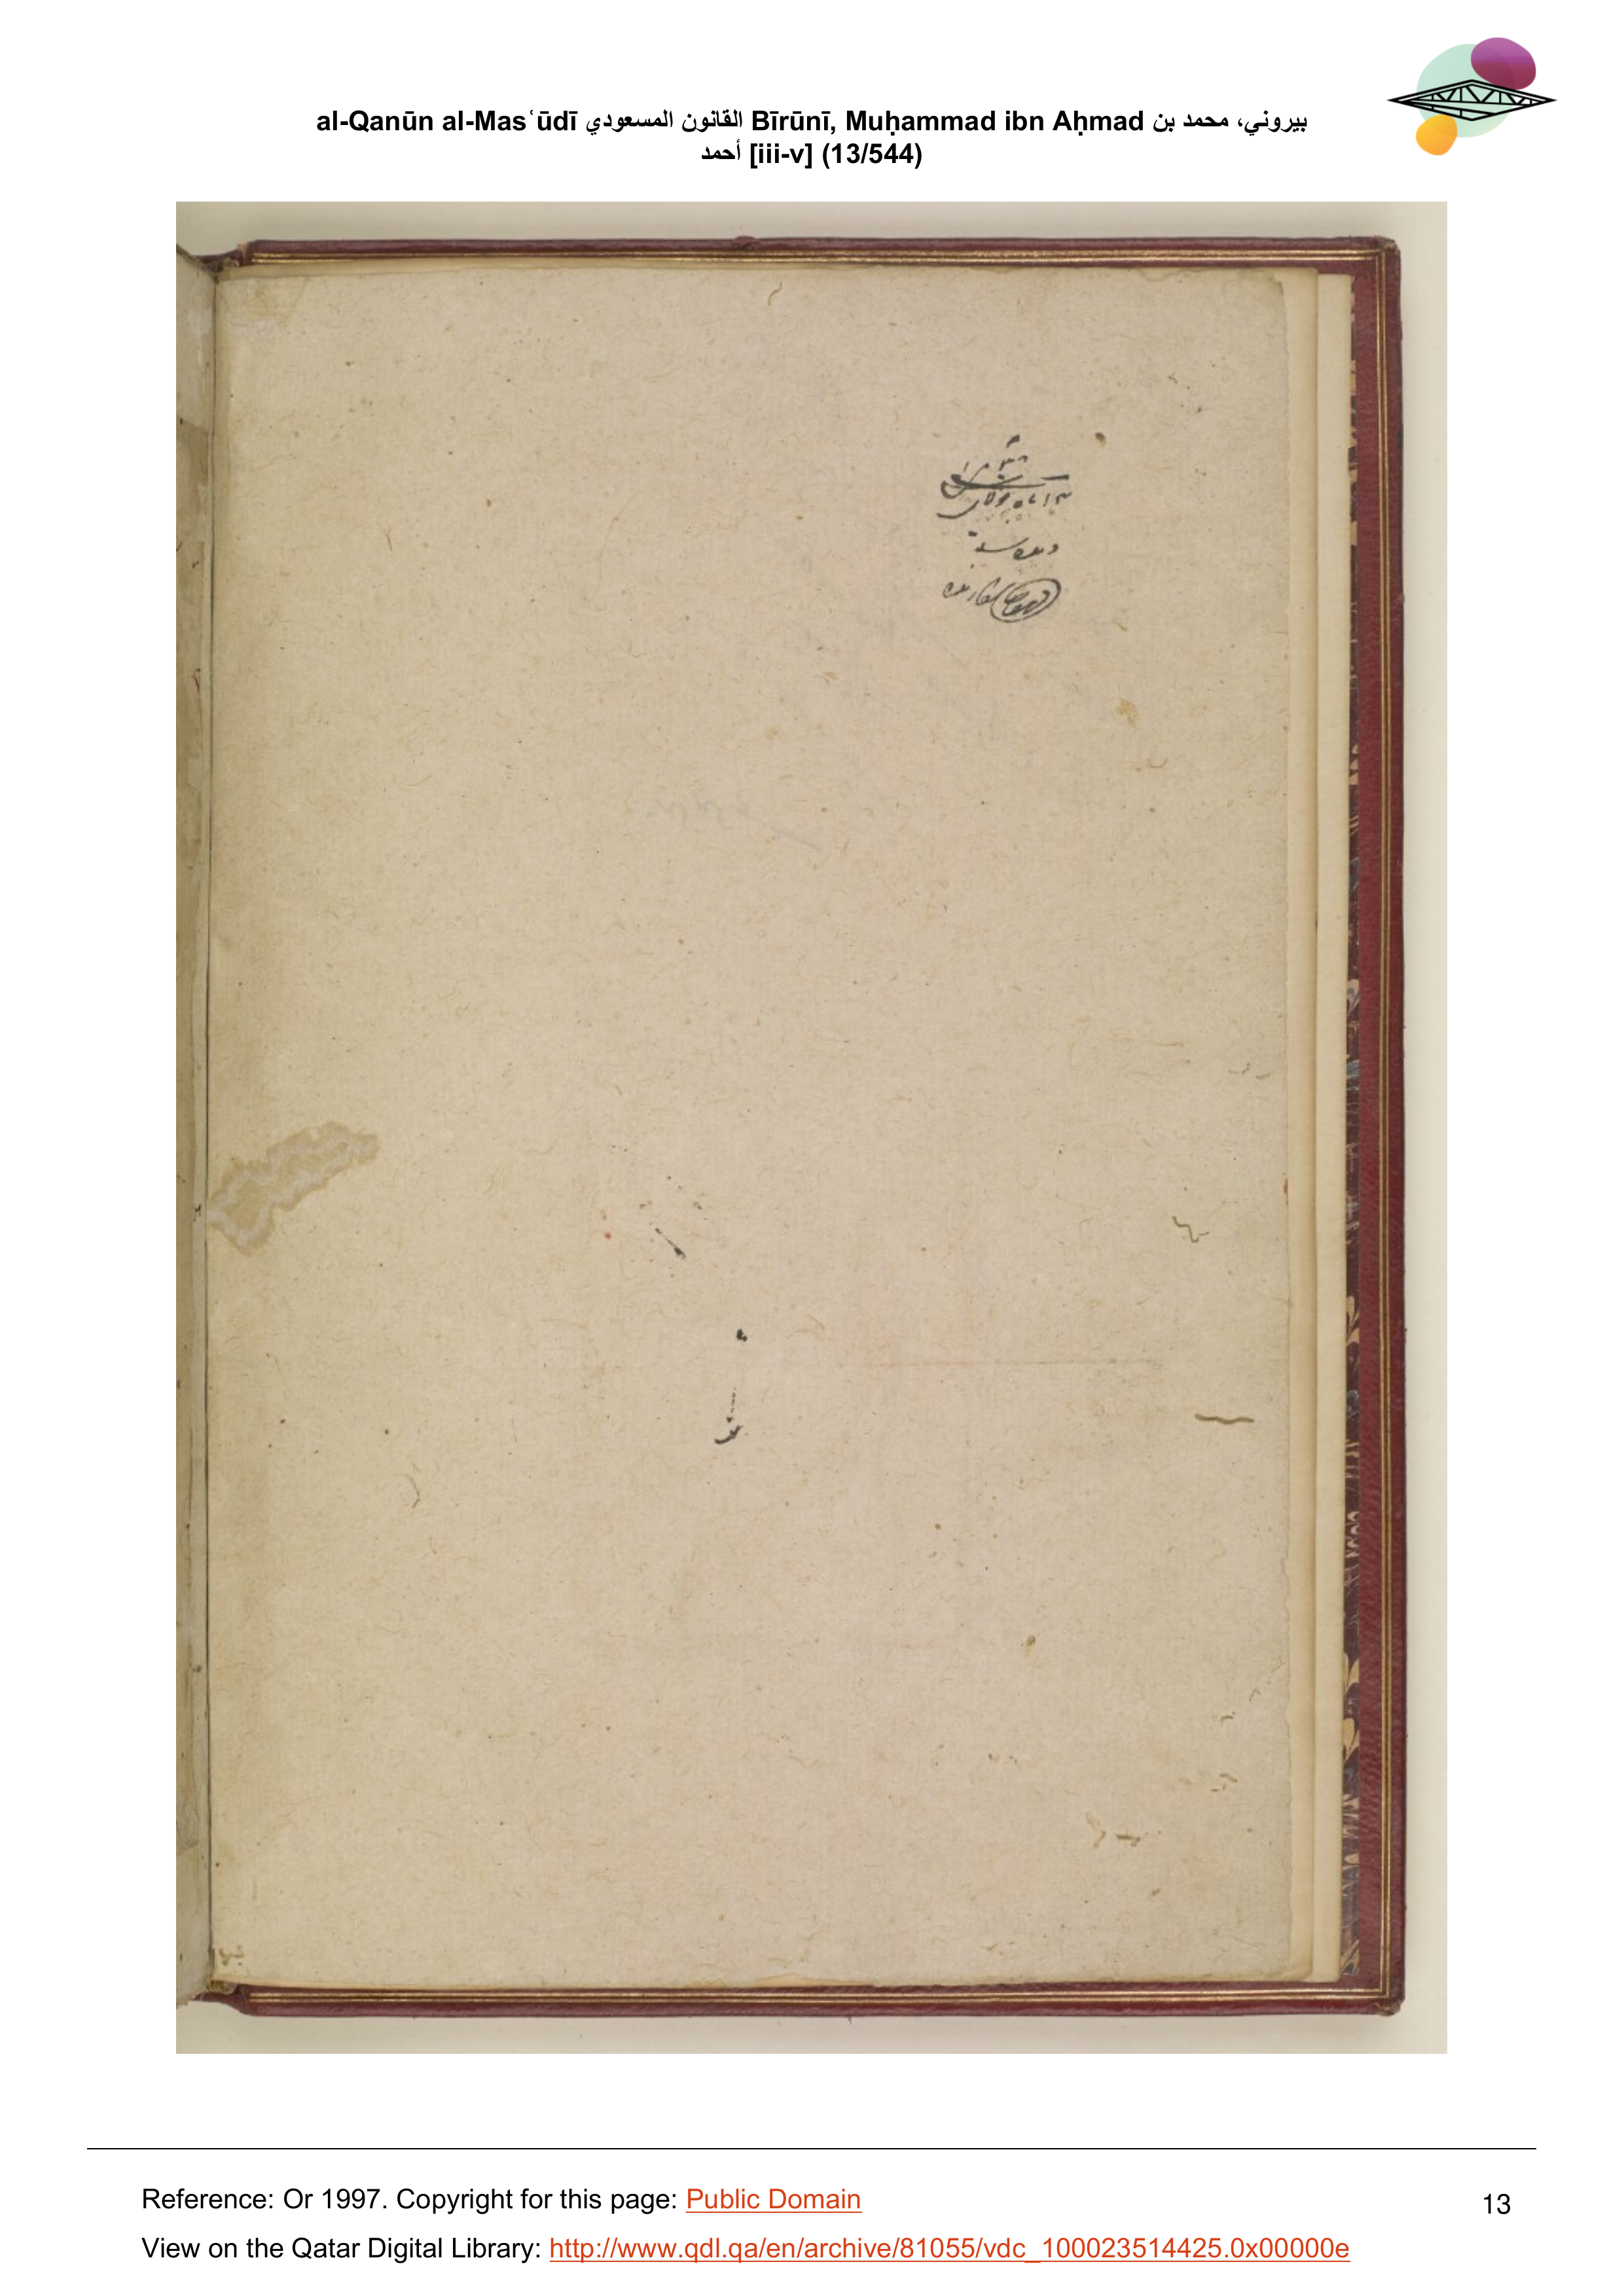 al-Qanūn al-Masʿūdī القانون المسعودي Bīrūnī, Muḥammad ibn Aḥmad بيروني، محمد بن
أحمد [iii-v] (13/544)
Reference: Or 1997. Copyright for this page: Public Domain
13
View on the Qatar Digital Library: http://www.qdl.qa/en/archive/81055/vdc_100023514425.0x00000e